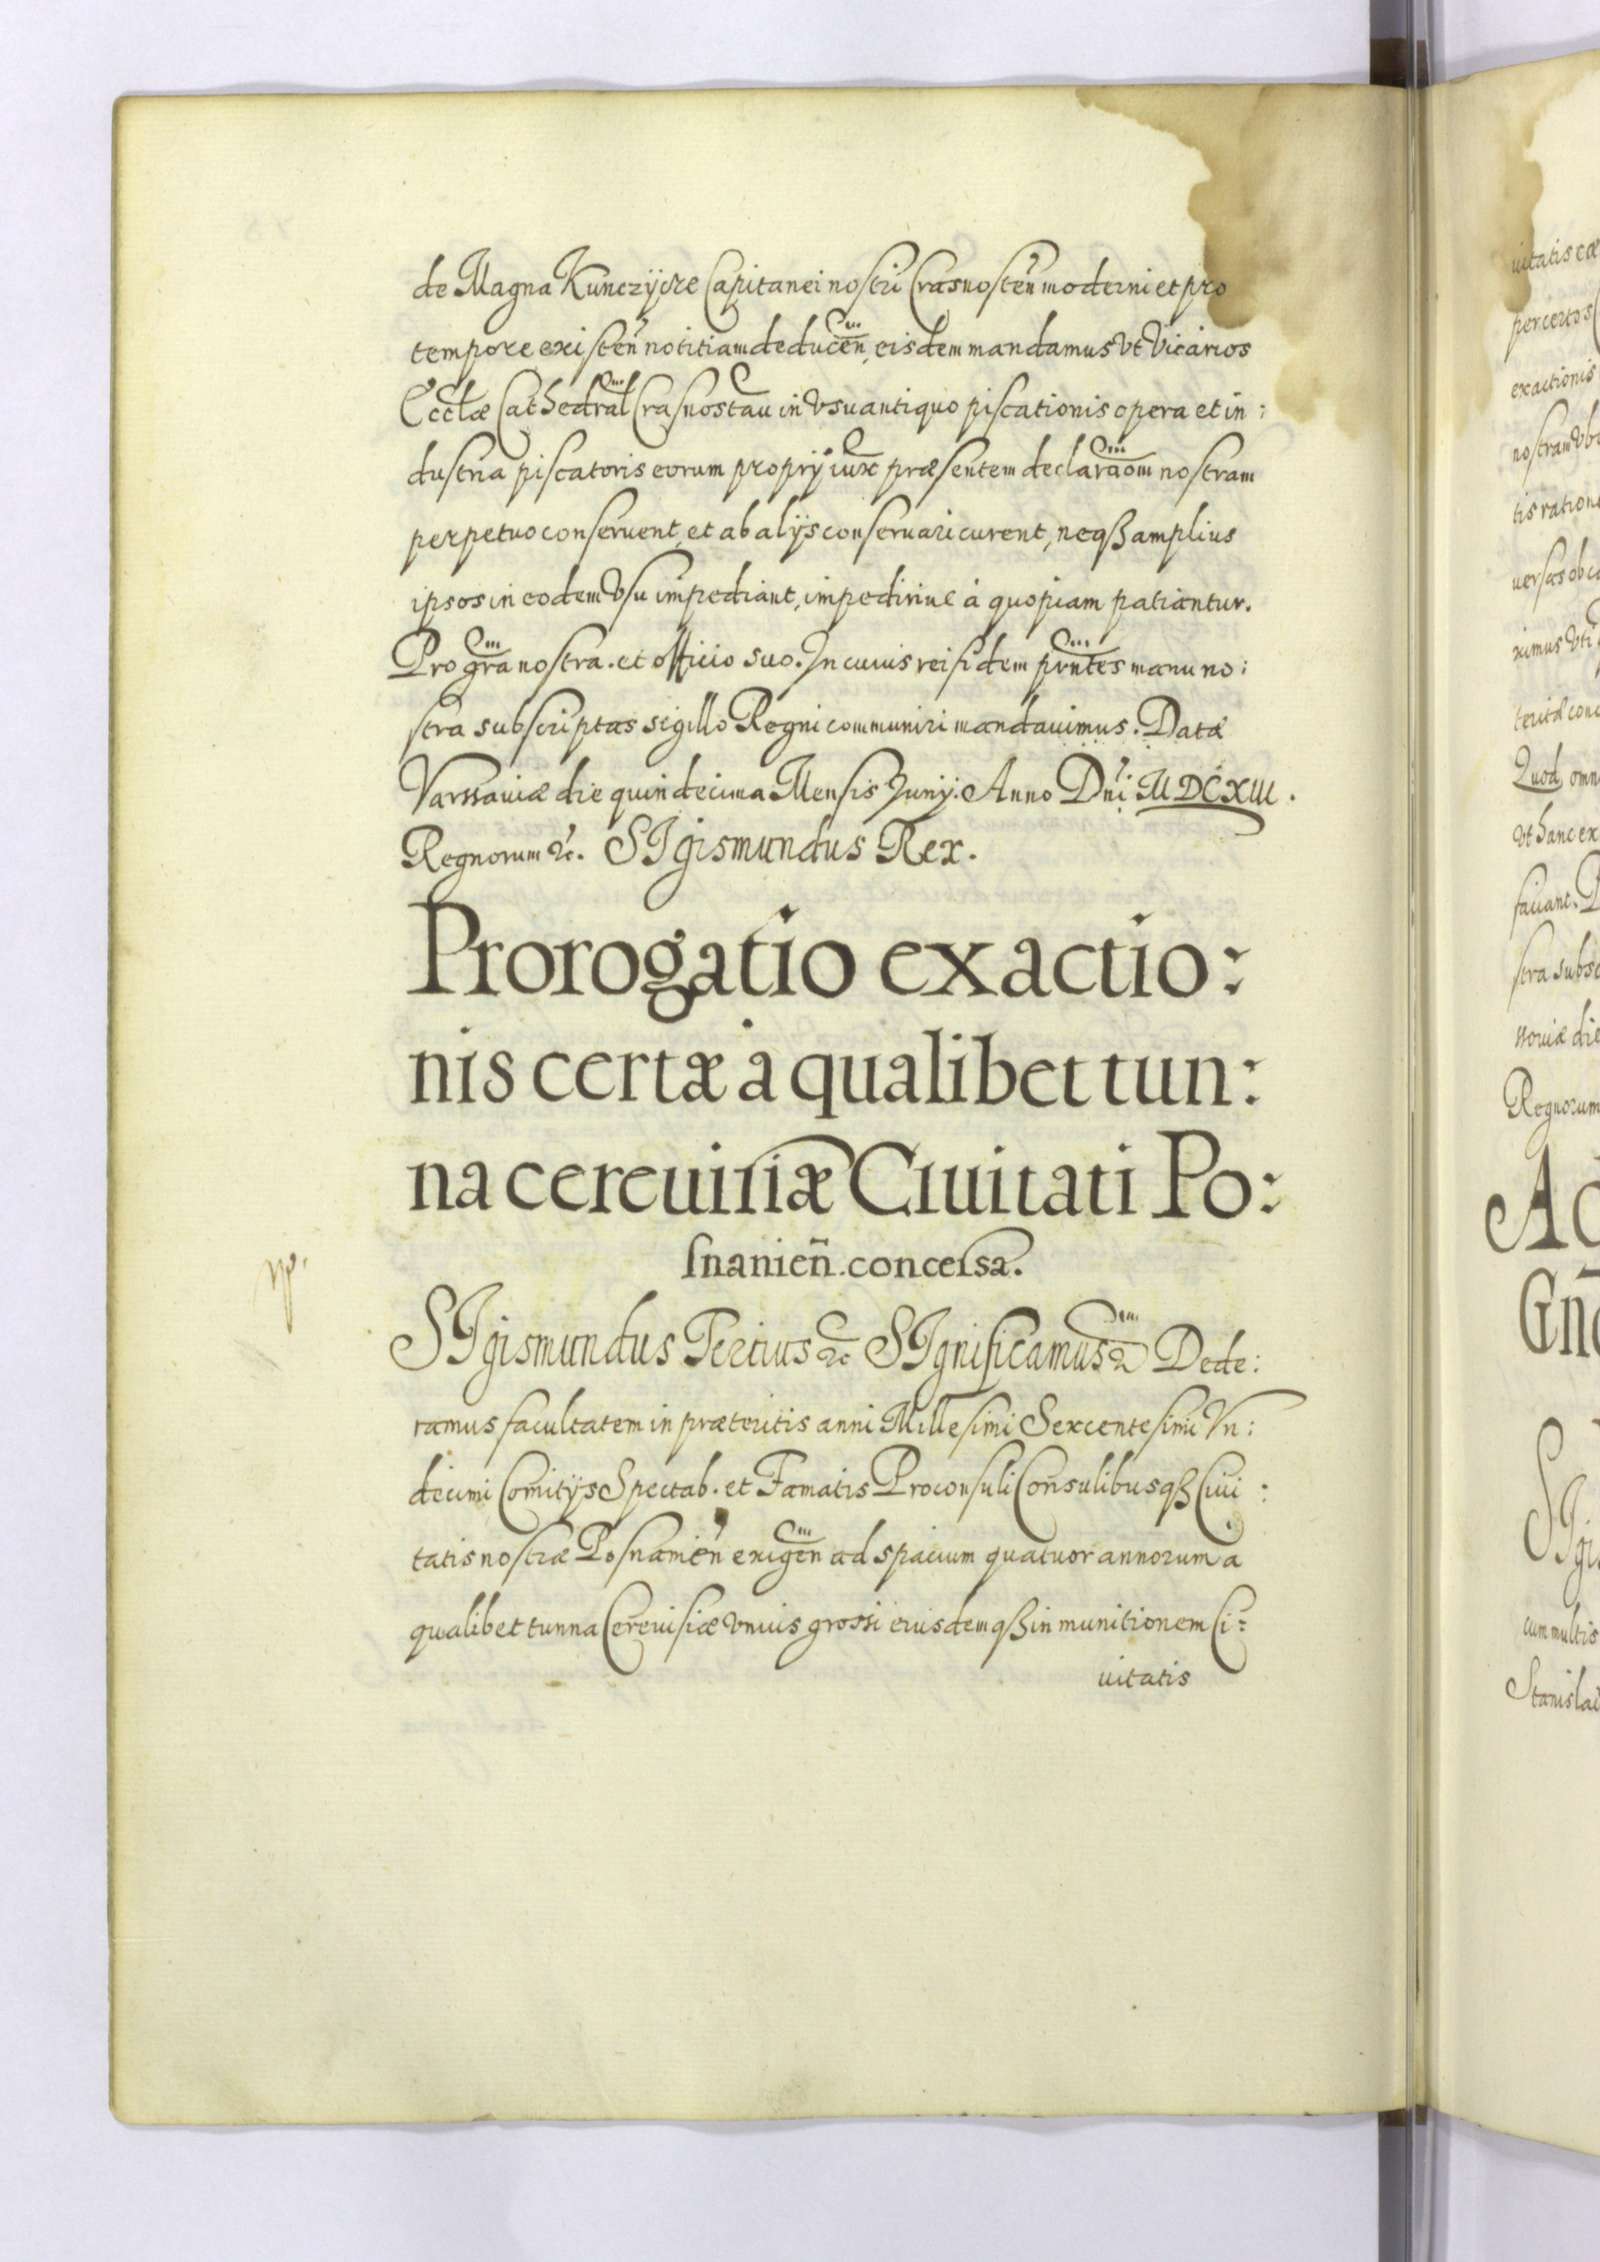 de Magna Kunczÿcze Capitanei nostri Crasnosteñ moderni et pro
tempore existeñ notitiam deduceñ, eisdem mandamus vt Vicarios
Eccłæ Cathedral Crasnostau in vsu antiquo piscationis opera et in:
dustria piscatoris eorum proprÿ iux præsentem declaraom nostram
perpetuo conseruent, et ab alÿs conseruari curent, neqȝ amplius
ipsos in eodem vsu impediant, impediriue à quopiam patiantur.
Pro gra nostra. et officio suo. In cuius rei fidem pñtes manu no:
stra subscriptas sigillo Regni communiri mandauimus. Datæ
Varssauiæ die quindecima Mensis Junÿ. Anno Dñi MDCXIII.
Regnorum etc. SIgismundus Rex.
Prorogatio exactio:
nis certæ à qualibet tun:
na cereuisiæ Ciuitati Po:
snanieñ. concessa.
SIgismundus Tertius etc SIgnificamus etc Dede:
ramus facultatem in præteritis anni Millesimi Sexcentesimi Vn:
decimi Comitÿs Spectab. et Famatis Proconsuli Consulibusqȝ Ciui:
tatis nostræ Posnanieñ exigeñ ad spacium quatuor annorum a
qualibet tunna Cereuisiæ vnius grossi eiusdemqȝ in munitionem Ci:
uitatis
uitatis
per certos
exactionis
nostram
tis ratione
uersas
ximus vti
Quod omn
vt hanc ex
fauant. P
stra subsc
Regnorum
Ac
Gn
SIgi
cum multis
Stanisla